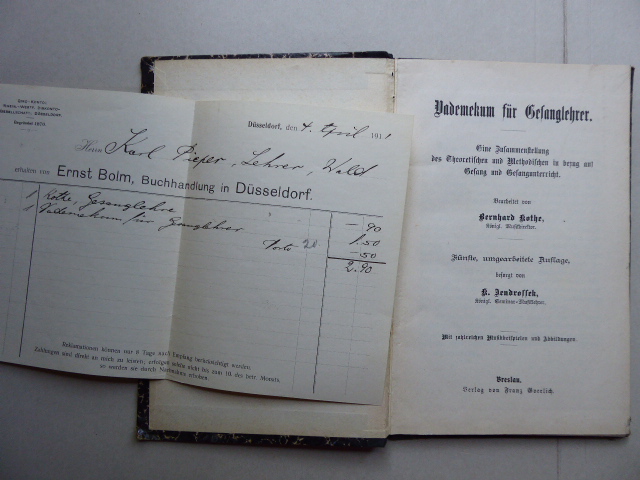 GIRO-KONTO:
RHEIN.-WESTF. DISKONTO-
GESELLSCHAFT, DÜSSELDORF.
Gegründet 1870.
Düsseldorf, den 4. April 1911
Herrn Karl Pieper, Lehrer, Wald
erhalten von Ernst Bolm, Buchhandlung in Düsseldorf.
1 Kothe, Gesanglehre — 90
1 Vademekum für Gesanglehrer 1.50
Porto 20 — 50
2.90
Reklamationen können nur 8 Tage nach Empfang berücksichtigt werden.
Zahlungen sind direkt an mich zu leisten; erfolgen solche nicht bis zum 10. des betr. Monats,
so werden sie durch Nachnahme erhoben.
Vademekum für Gesanglehrer.
Eine Zusammenstellung
des Theoretischen und Methodischen in bezug auf
Gesang und Gesangunterricht.
Bearbeitet von
Bernhard Kothe,
Königl. Musikdirektor.
Fünfte, umgearbeitete Auflage,
besorgt von
K. Jendrossek,
Königl. Seminar-Musiklehrer.
Mit zahlreichen Musikbeispielen und Abbildungen.
Breslau.
Verlag von Franz Goerlich.